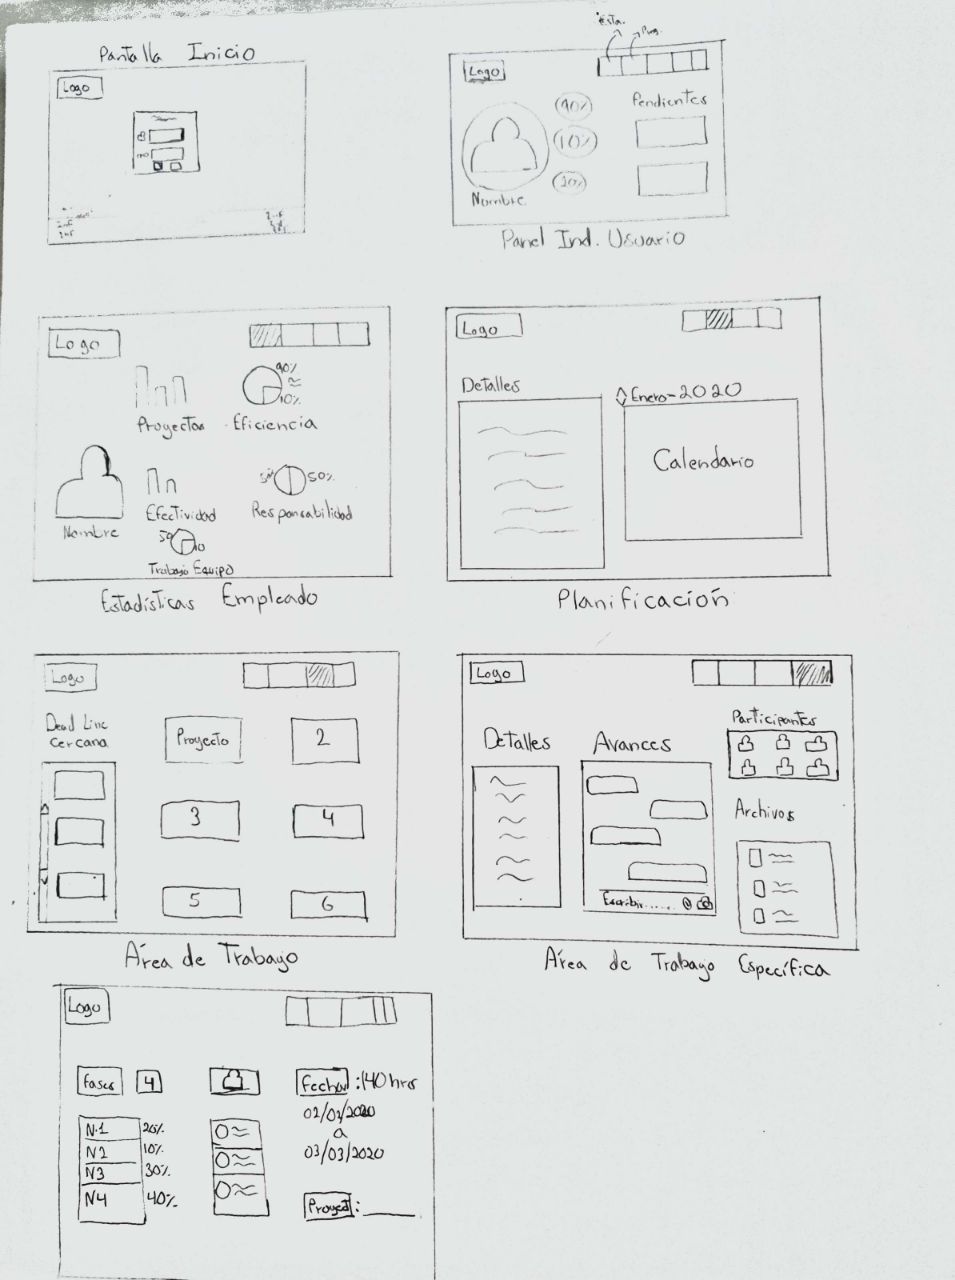 Pantalla Inicio
Logo
Esta.
Logo
40%
10%
10%
Pendientes
Nombre
Panel Ind. Usuario
Logo
90%
10%
Proyectos
Eficiencia
50%
Efectividad
Responsabilidad
Nombre
Trabajo Equipo
Estadísticas Empleado
Logo
Detalles
Enero-2020
Calendario
Planificación
Logo
Dead Line
Cercana
Proyecto
2
3
4
5
6
Área de Trabajo
Logo
Detalles
Avances
Participantes
Archivos
Escribir......
Área de Trabajo Específica
Logo
Fases
4
Fecha : 140 hrs
N.1 20%
N2 10%
N3 30%
N4 40%
02/01/2020
a
03/03/2020
Proyect :